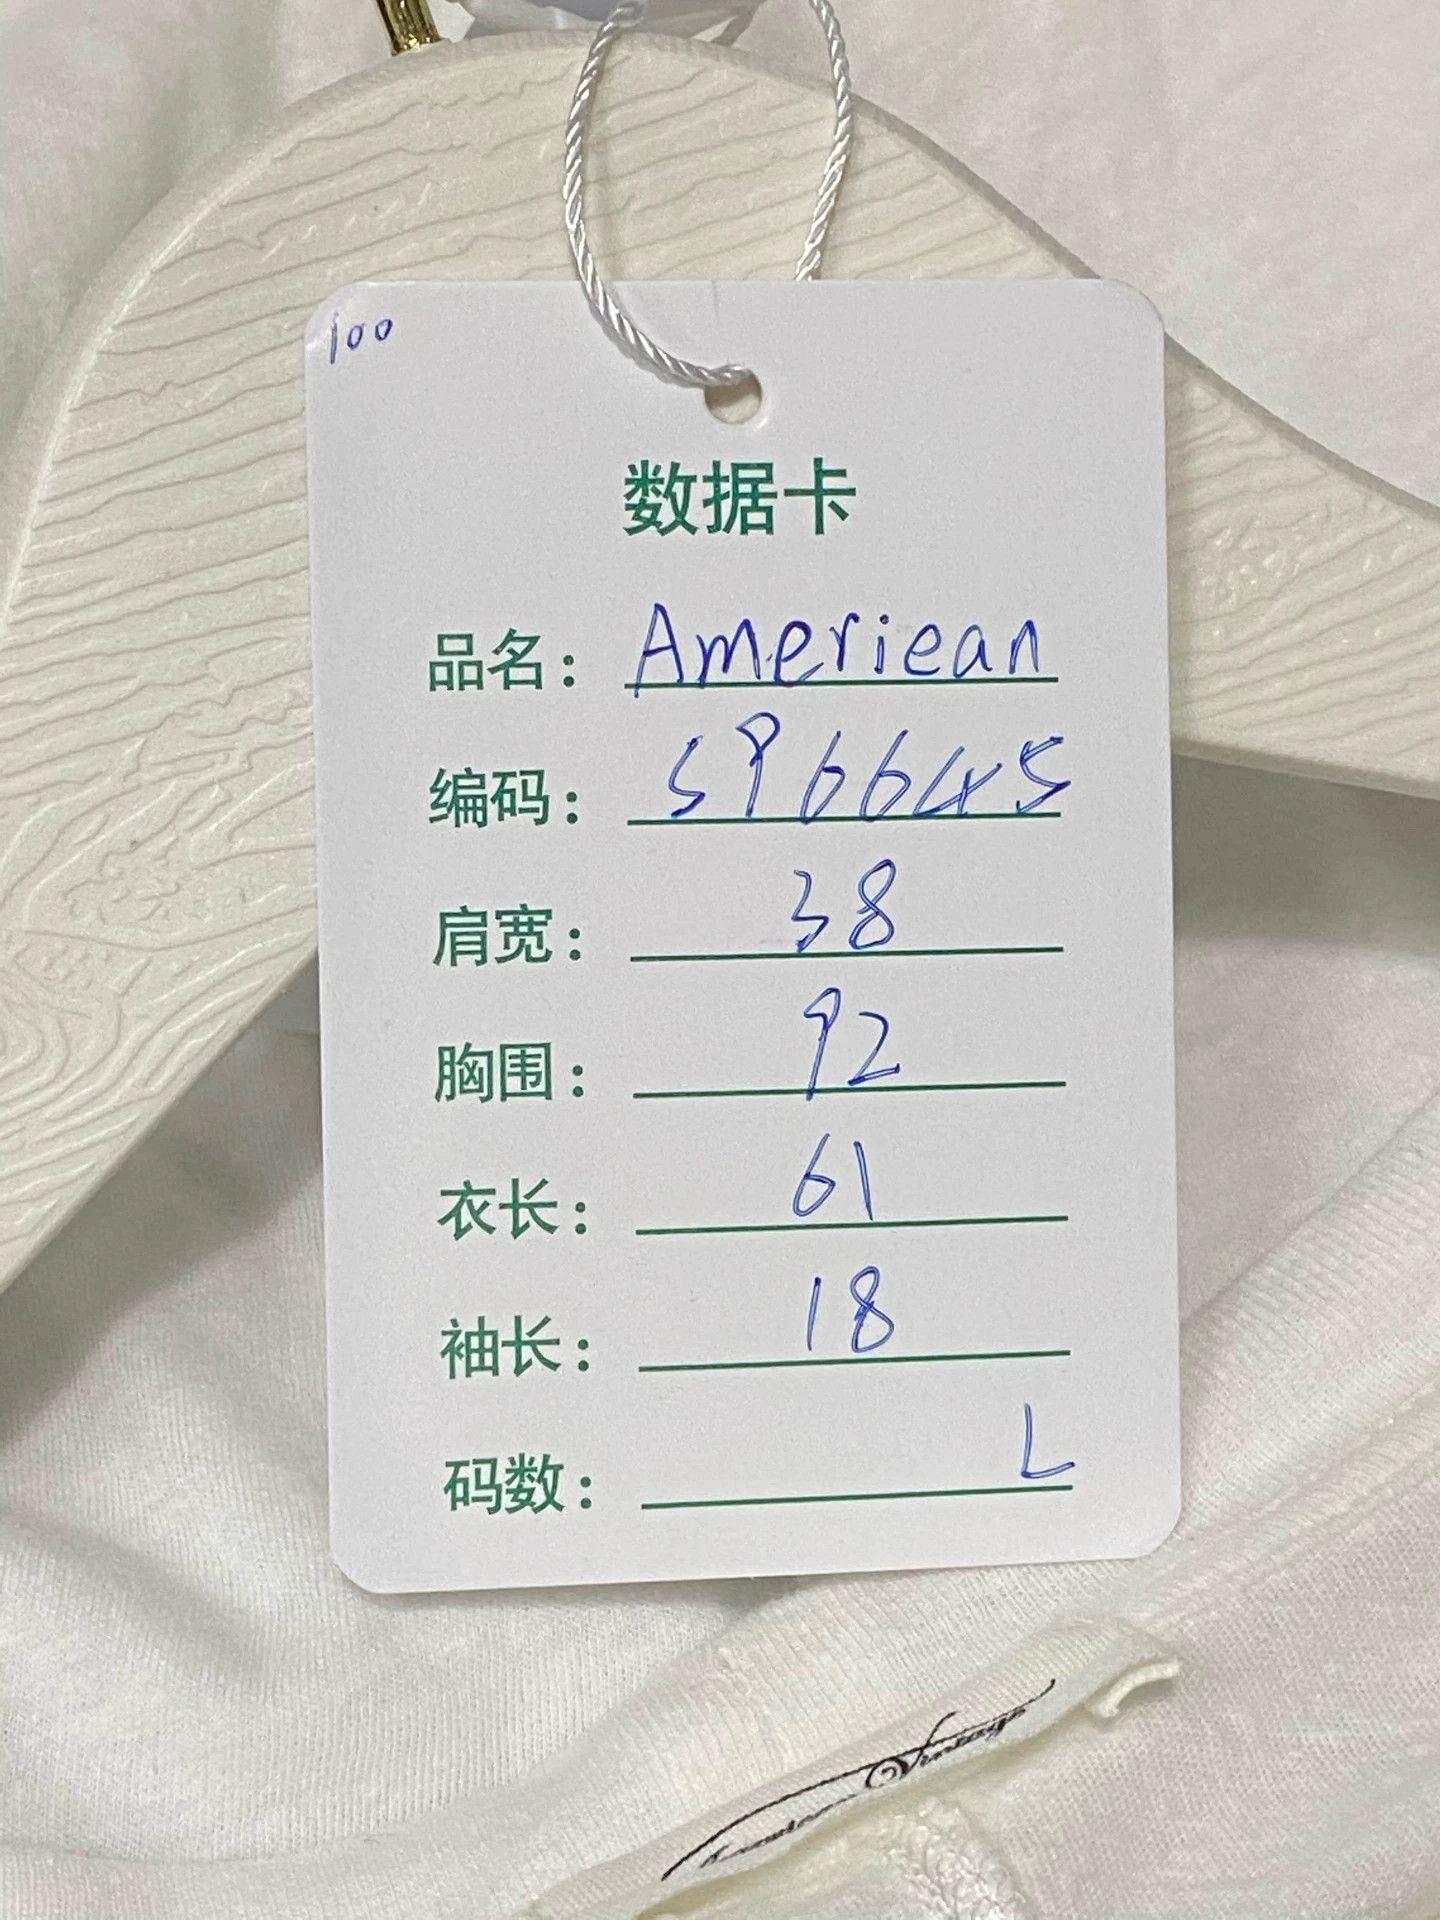 100
数据卡
品名: Ameriean
编码: S96645
肩宽: 38
胸围: 92
衣长: 61
袖长: 18
码数: L
Vintage